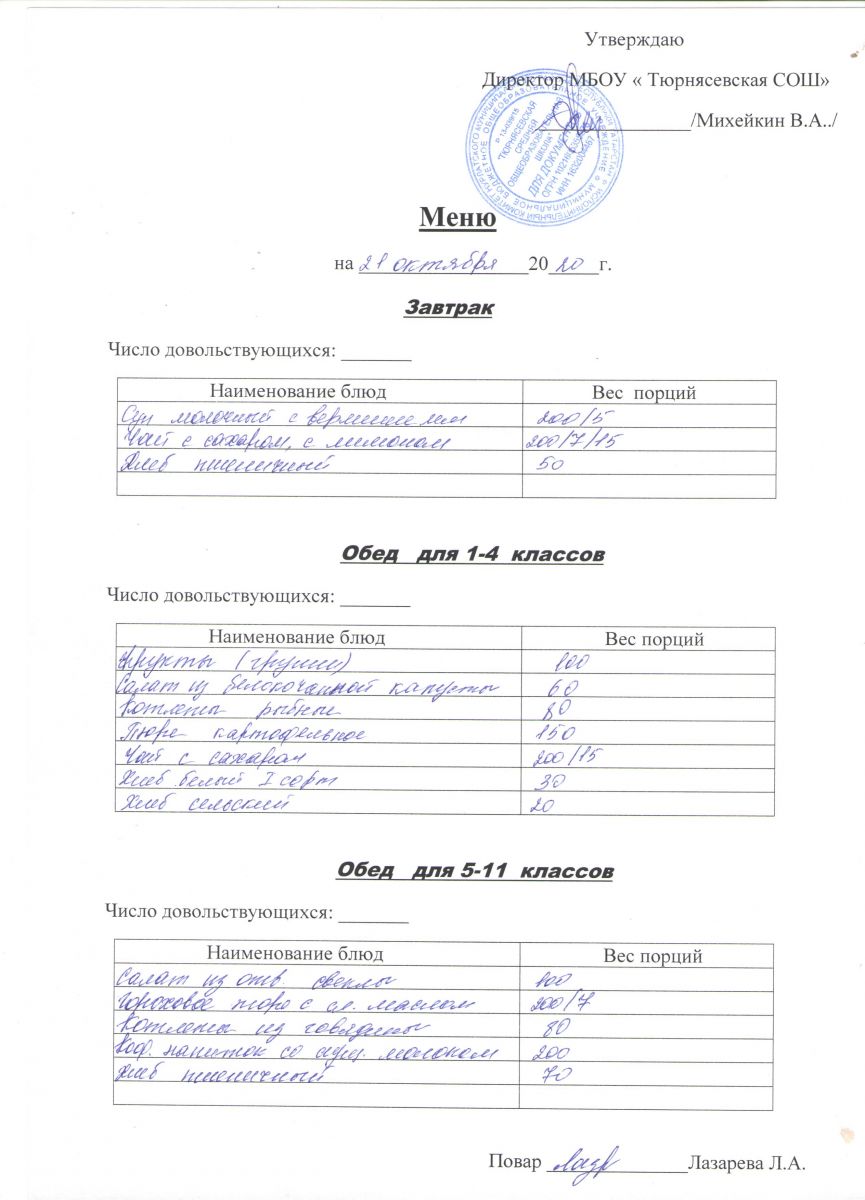 Утверждаю
Директор МБОУ « Тюрнясевская СОШ»
______________/Михейкин В.А../
"ТЮРНЯСЕВСКАЯ
СРЕДНЯЯ
ОБЩЕОБРАЗОВАТЕЛЬНАЯ
ШКОЛА"
ДЛЯ ДОКУМЕНТОВ
Меню
на 21 октября 20 20 г.
Завтрак
Число довольствующихся: _______
Наименование блюд Вес порций
Суп молочный с вермишелью 200/5
Чай с сахаром, с лимоном 200/7/15
Хлеб пшеничный 50
Обед для 1-4 классов
Число довольствующихся: _______
Наименование блюд Вес порций
Фрукты (груши) 100
Салат из белокочанной капусты 60
Котлеты рыбные 80
Пюре картофельное 150
Чай с сахаром 200/15
Хлеб белый I сорт 30
Хлеб сельский 20
Обед для 5-11 классов
Число довольствующихся: _______
Наименование блюд Вес порций
Салат из отв. свеклы 100
Гороховое пюре с сл. маслом 200/7
Котлеты из говядины 80
Коф. напиток со сгущ. молоком 200
Хлеб пшеничный 70
Повар ______________Лазарева Л.А.